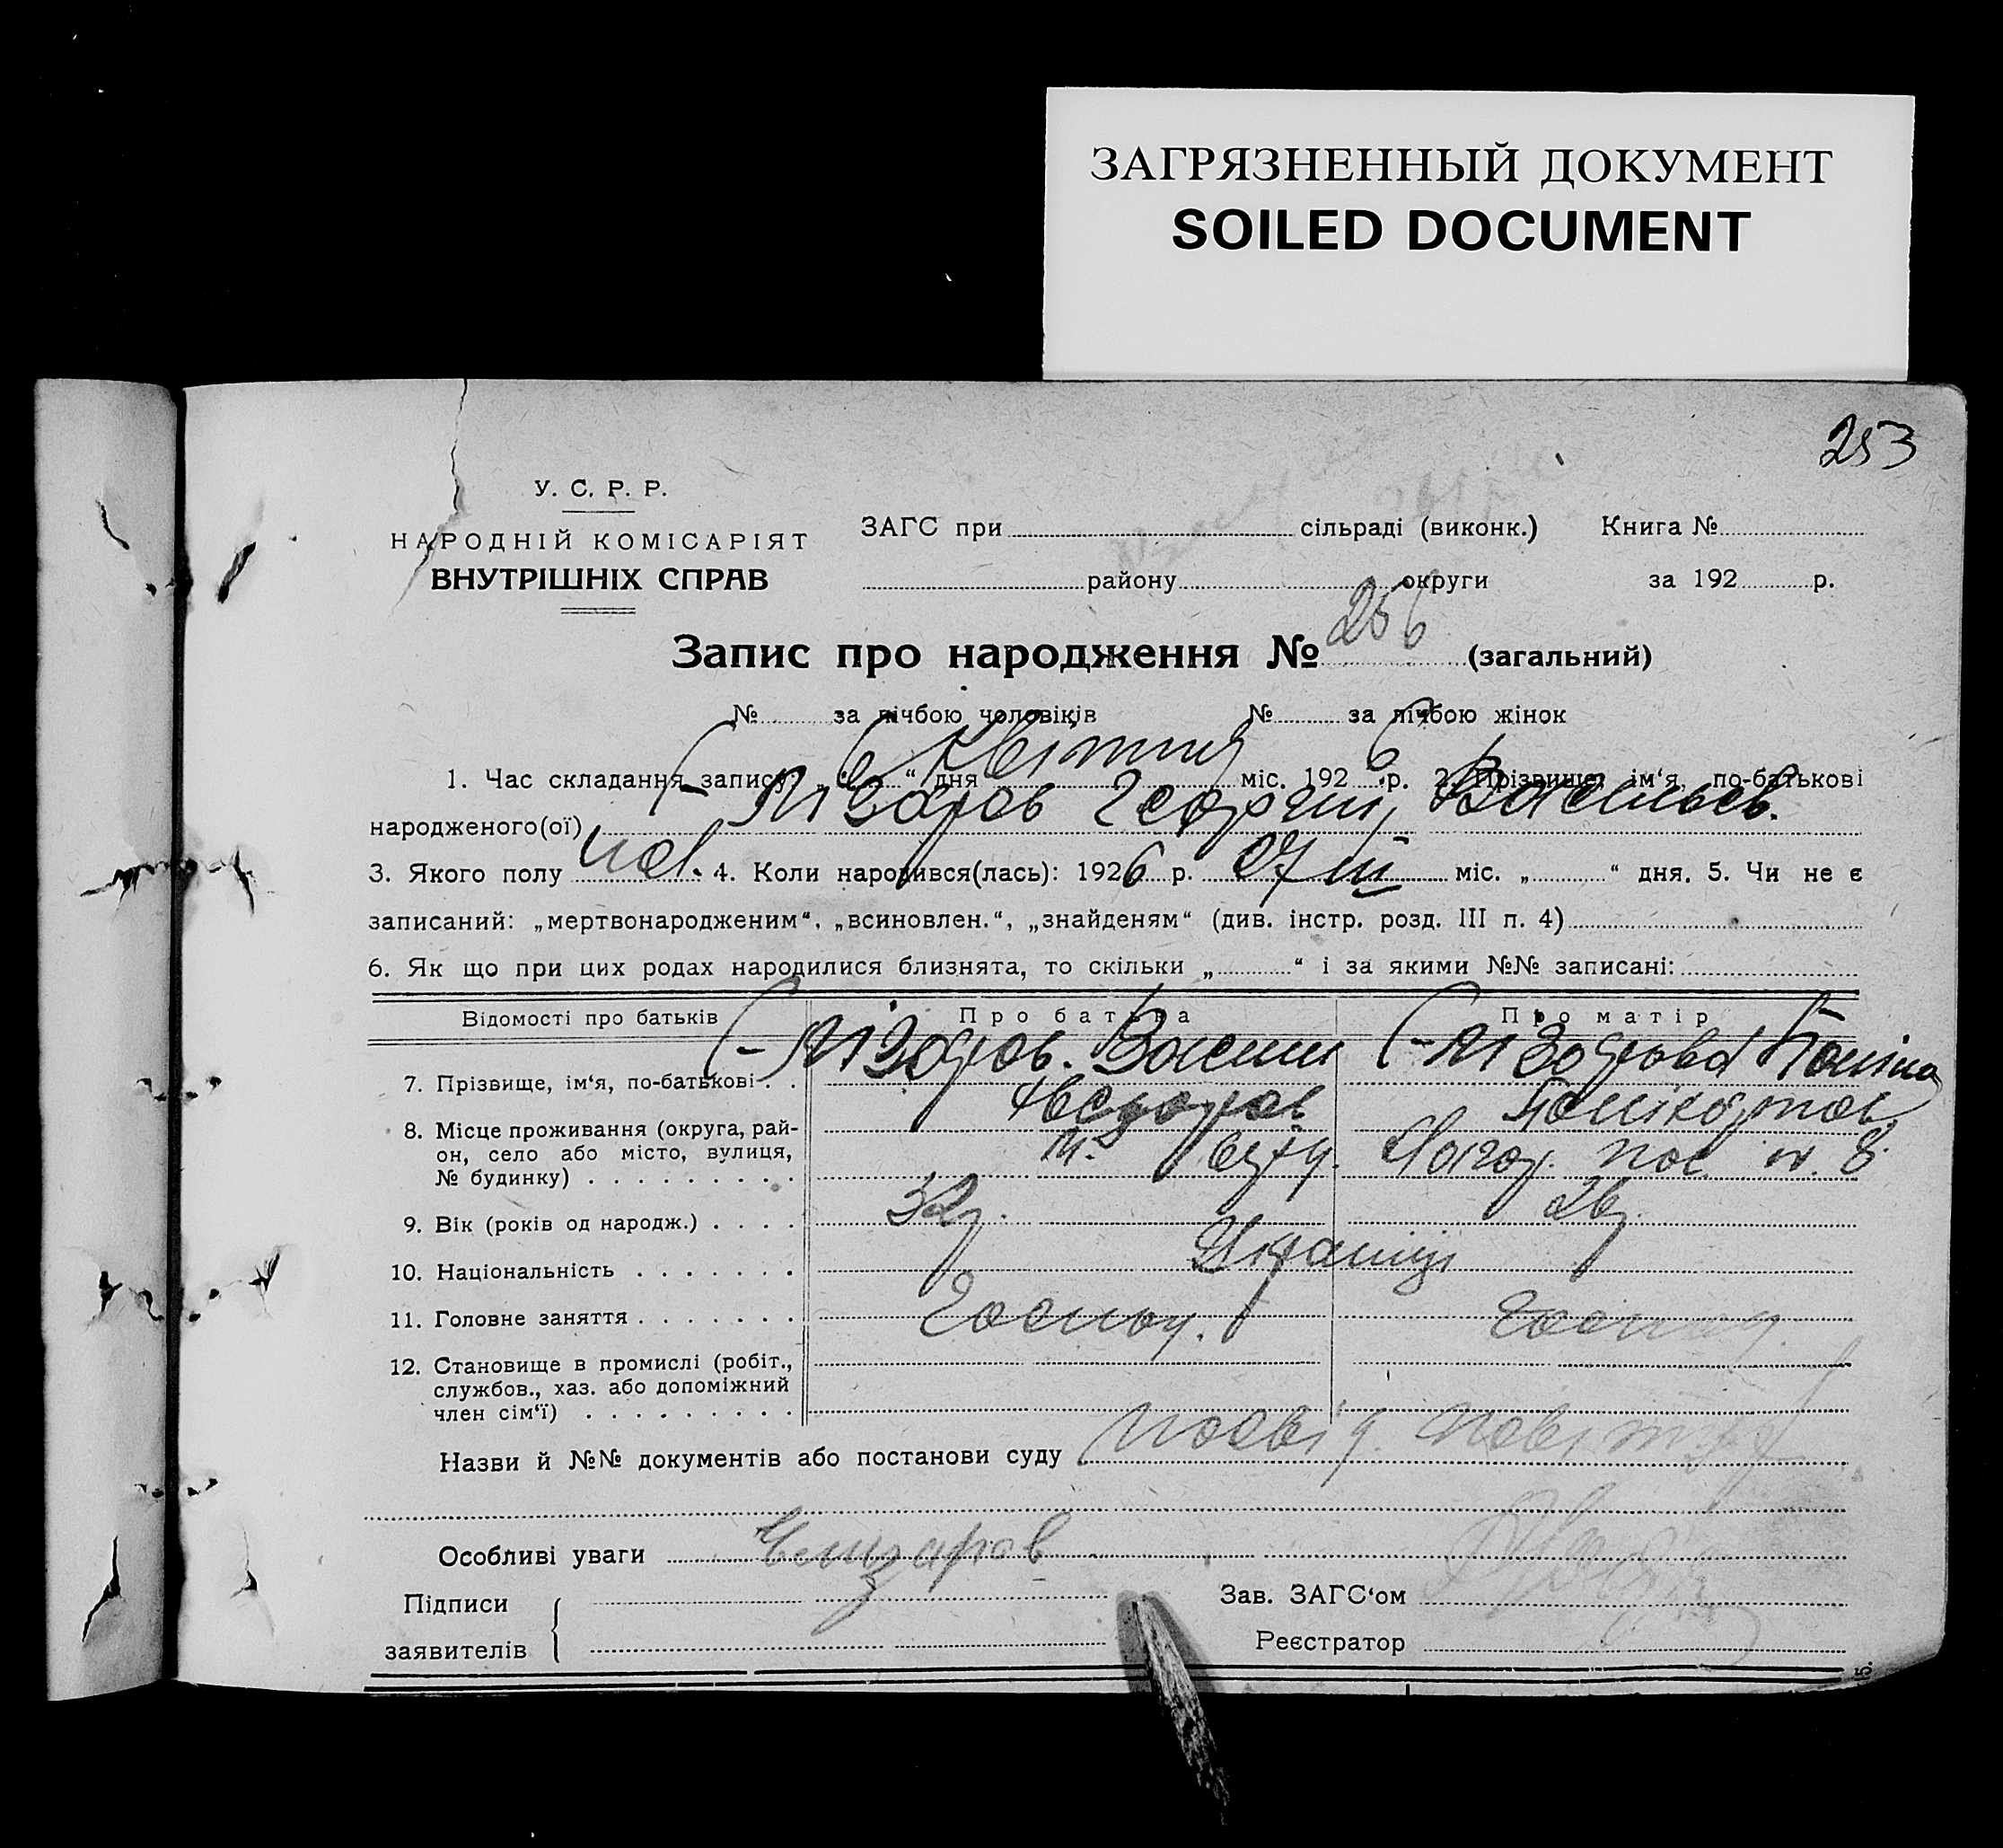 ЗАГРЯЗНЕННЫЙ ДОКУМЕНТ
SOILED DOCUMENT
253
У. С. Р. Р.
НАРОДНІЙ КОМІСАРІЯТ
ВНУТРІШНІХ СПРАВ
ЗАГС при сільраді (виконк.) Книга №
району округи за 192 р.
Запис про народження № 256 (загальний)
№ за лічбою чоловіків № за лічбою жінок
1. Час складання запису „ 6 “ дня квітня міс. 192 6 р. 2. Прізвище, ім‘я, по-батькові
народженого(ої) Георгій Васильев.
3. Якого полу чол. 4. Коли народився(лась): 1926 р. 27 III міс. „ “ дня. 5. Чи не є
записаний: „мертвонародженим“, „всиновлен.“, „знайденям“ (див. інстр. розд. III п. 4)
6. Як що при цих родах народилися близнята, то скільки „ “ і за якими №№ записані:
Відомості про батьків Про батька Про матір
7. Прізвище, ім‘я, по-батькові Василь
8. Місце проживання (округа, рай-
он, село або місто, вулиця,
№ будинку) пос. 8
9. Вік (років од народж.) 32р. 26р.
10. Національність Українці
11. Головне заняття Господ. Господ.
12. Становище в промислі (робіт.,
службов., хаз. або допоміжний
член сім‘ї)
Назви й №№ документів або постанови суду посвід.
Особливі уваги
Підписи
заявителів
Зав. ЗАГС‘ом
Реєстратор